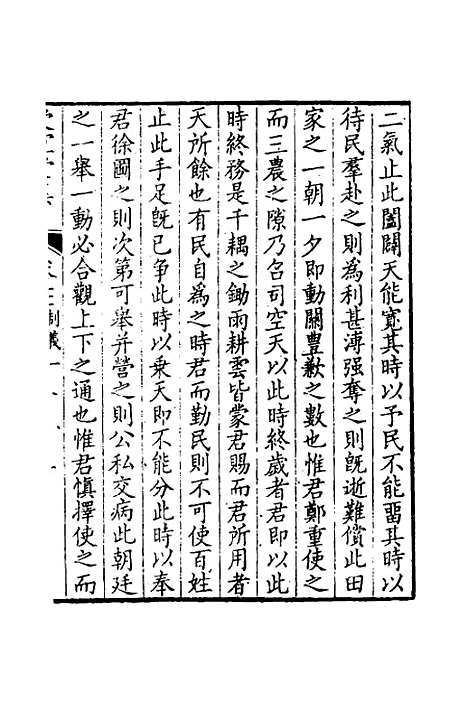 二氣止此闔闢天能寬其時以予民不能畱其時以
待民羣赴之則為利甚溥强奪之則旣逝難償此田
家之一朝一夕即動關豐歉之數也惟君鄭重使之
而三農之隙乃召司空天以此時終歲者君即以此
時終務是千耦之鋤雨耕雲皆蒙君賜而君所用者
天所餘也有民自為之時君而勤民則不可使百姓
止此手足旣已争此時以乗天即不能分此時以奉
君徐圖之則次第可舉并營之則公私交病此朝廷
之一舉一動必合觀上下之通也惟君慎擇使之而
制義